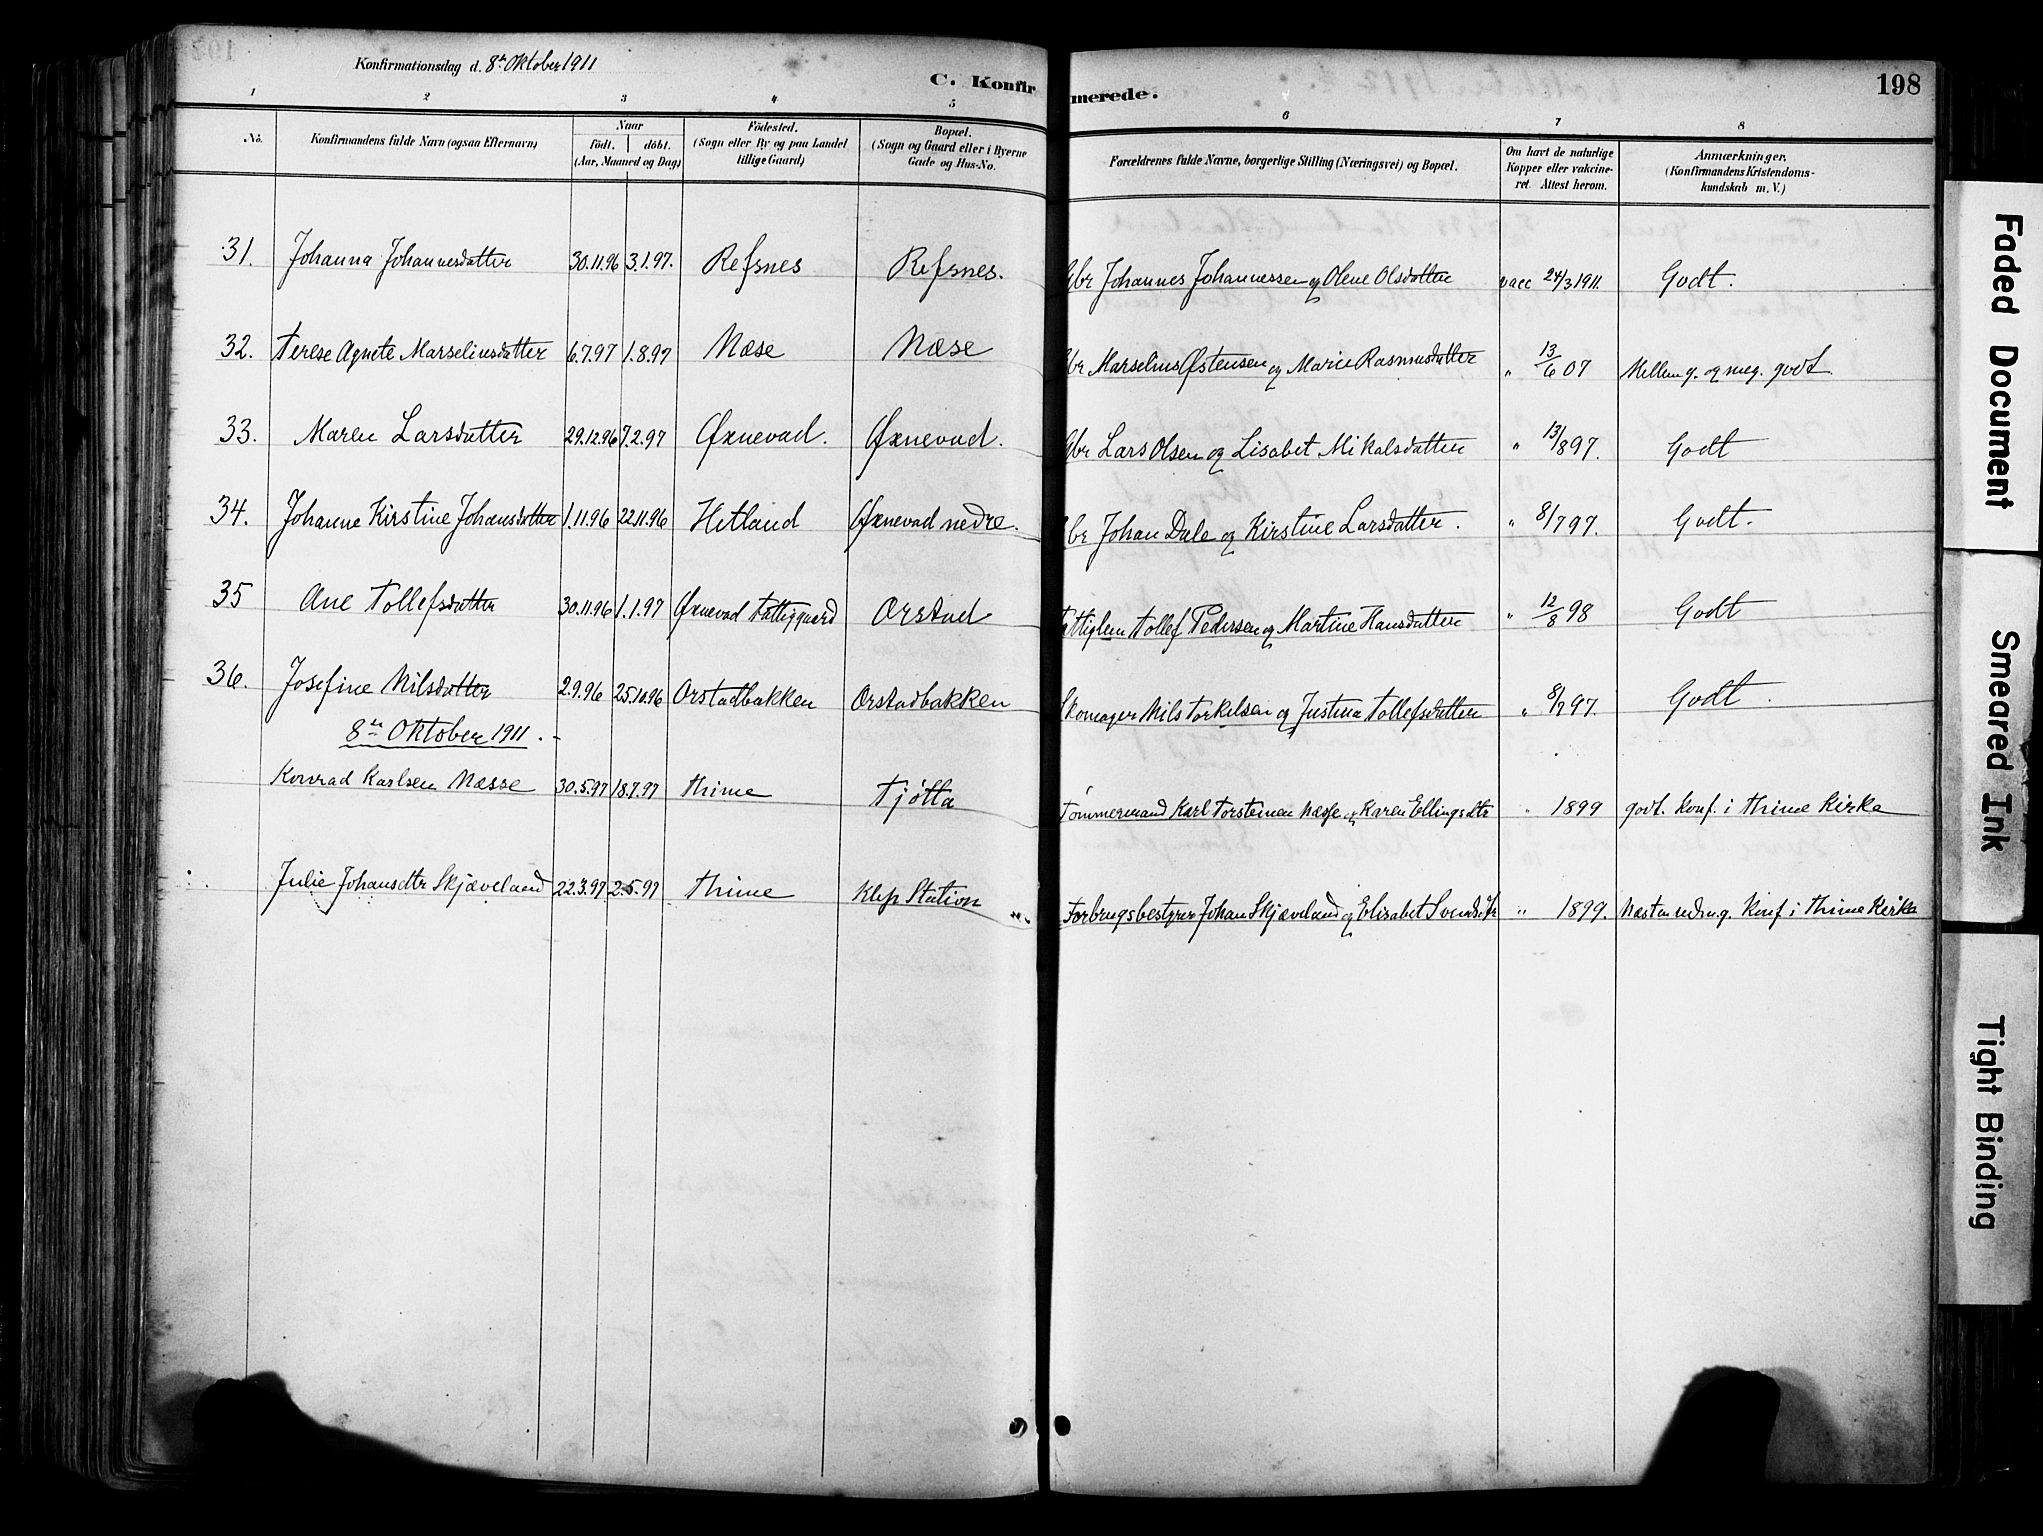 Konfirmationsdag d. 8de Oktober 1911
C. Konfir merede. 198
1 2 3 4 5 6 7 8
No. Konfirmandens fulde Navn (ogsaa Efternavn) Naar født. døbt. (Aar, Maaned og Dag) Fødested. (Sogn eller By og paa Landet tillige Gaard) Bopæl. (Sogn og Gaard eller i Byerne Gade og Hus-No. Forældrenes fulde Navne, borgerlige Stilling (Næringsvei) og Bopæl. Om havt de naturlige Kopper eller vakcineret. Attest herom. Anmærkninger. (Konfirmandens Kristendomskundskab m. V.)
31. Johanna Johannesdatter 30.11.96 3.1.97. Refsnes Refsnes. Gbr Johannes Johannessen og Olene Olsdatter vacc 24/3 1911. Godt.
32. Terese Agnete Marseliusdatter 6.7.97 1.8.97 Næse Næse Gbr Marselius Østensen og Marie Rasmusdatter " 13/6 07 Mellem g. og meg. godt
33. Maren Larsdatter 29.12.96 7.2.97 Øxnevad. Øxnevad. Gbr Lars Olsen og Lisabet Mikalsdatter " 13/8 97. Godt
34. Johanne Kirstine Johansdatter 1.11.96 22.11.96 Hetland Øxnevad nedre. Gbr Johan Dale og Kirstine Larsdatter. " 8/7 97. Godt.
35 Ane Tollefsdatter 30.11.96 1.1.97 Øxnevad Fattiggaard Orstad Fattiglem Tollef Pedersen og Martine Hansdatter " 12/8 98 Godt
36. Josefine Nilsdatter 2.9.96 25.10.96 Orstadbakken Orstadbakken Skomager Nils Torkelsen og Justina Tollefsdatter " 8/7 97. Godt.
8de Oktober 1911.-
Konrad Karlsen Næsse 30.5.97 18.7.97 Thime Tjøtta Tømmermand Karl Torsteinsen Næsse og Karen Ellingsdtr " 1899 godt. Konf. i Thime Kirke
Julie Johansdtr Skjæveland 22.3.97 2.5.97 Thime Klep Station Forbrugsbestyrer Johan Skjæveland og Elisabet Svendsdtr " 1899. Næsten udm.g. Konf i Thime Kirke
Faded Document
Smeared Ink
Tight Binding